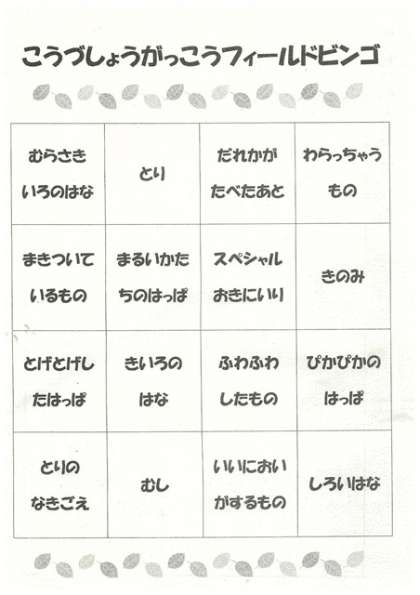 こうづしょうがっこうフィールドビンゴ
むらさき
いろのはな
とり
だれかが
たべたあと
わらっちゃう
もの
まきついて
いるもの
まるいかた
ちのはっぱ
スペシャル
おきにいり
きのみ
とげとげし
たはっぱ
きいろの
はな
ふわふわ
したもの
ぴかぴかの
はっぱ
とりの
なきごえ
むし
いいにおい
がするもの
しろいはな